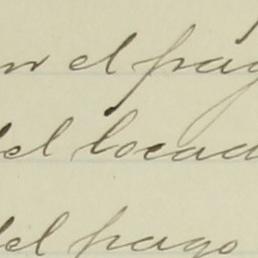 en el pag
del locad
del pago